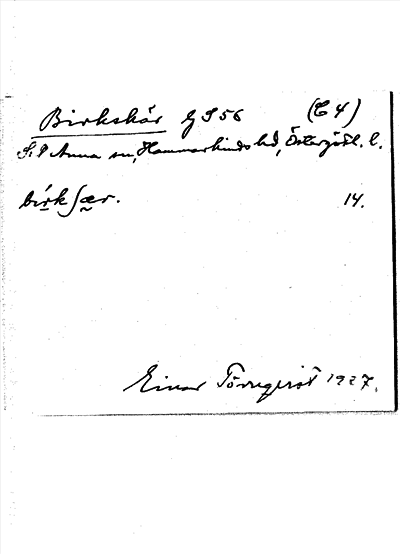 Birkskär G S 56 (C 4)
S:t Anna sn, Hammarkinds hd, Östergötl. l.
bi̱rkʃæ̰r. 14.
Einar Törnqvist 1927.